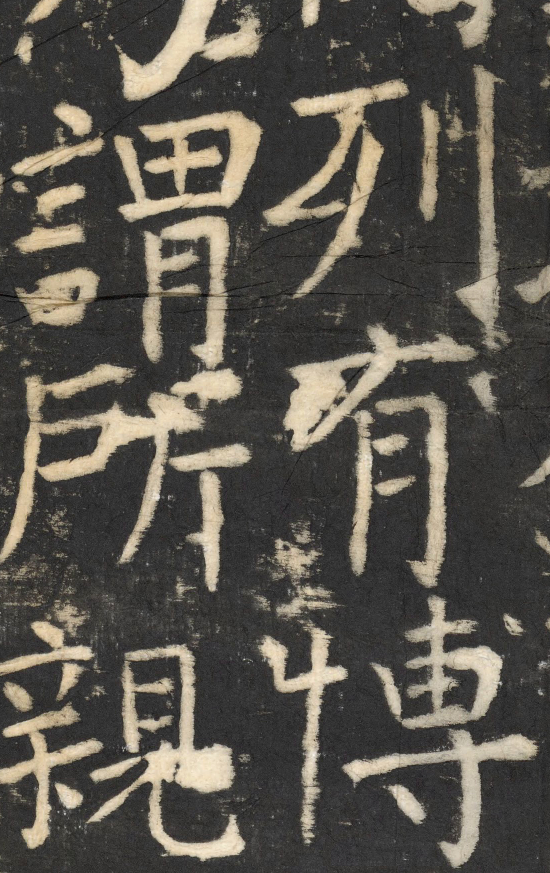 列有博
謂所親